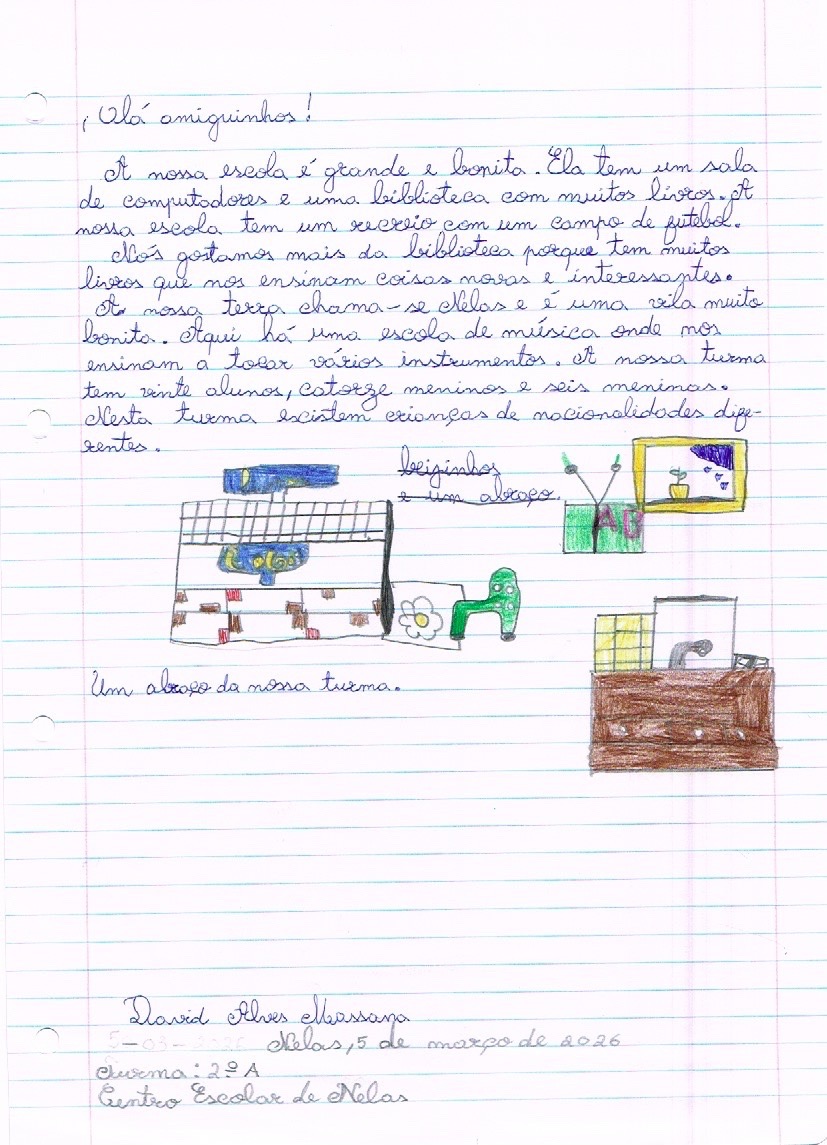 ¡Olá amiguinhos!
A nossa escola é grande e bonita. Ela tem um sala
de computadores e uma biblioteca com muitos livros. A
nossa escola tem um recreio com um campo de futebol.
Nós gostamos mais da biblioteca porque tem muitos
livros que nos ensinam coisas novas e interessantes.
A nossa terra chama-se Nelas e é uma vila muito
bonita. Aqui há uma escola de música onde nos
ensinam a tocar vários instrumentos. A nossa turma
tem vinte alunos, catorze meninos e seis meninas.
Nesta turma escistem crianças de nacionalidades dife-
rentes.
beijinhos
e um abraço.
AB
Um abraço da nossa turma.
David Alves Massana
5-03-2026 Nelas, 5 de março de 2026
Turma: 2º A
Centro Escolar de Nelas